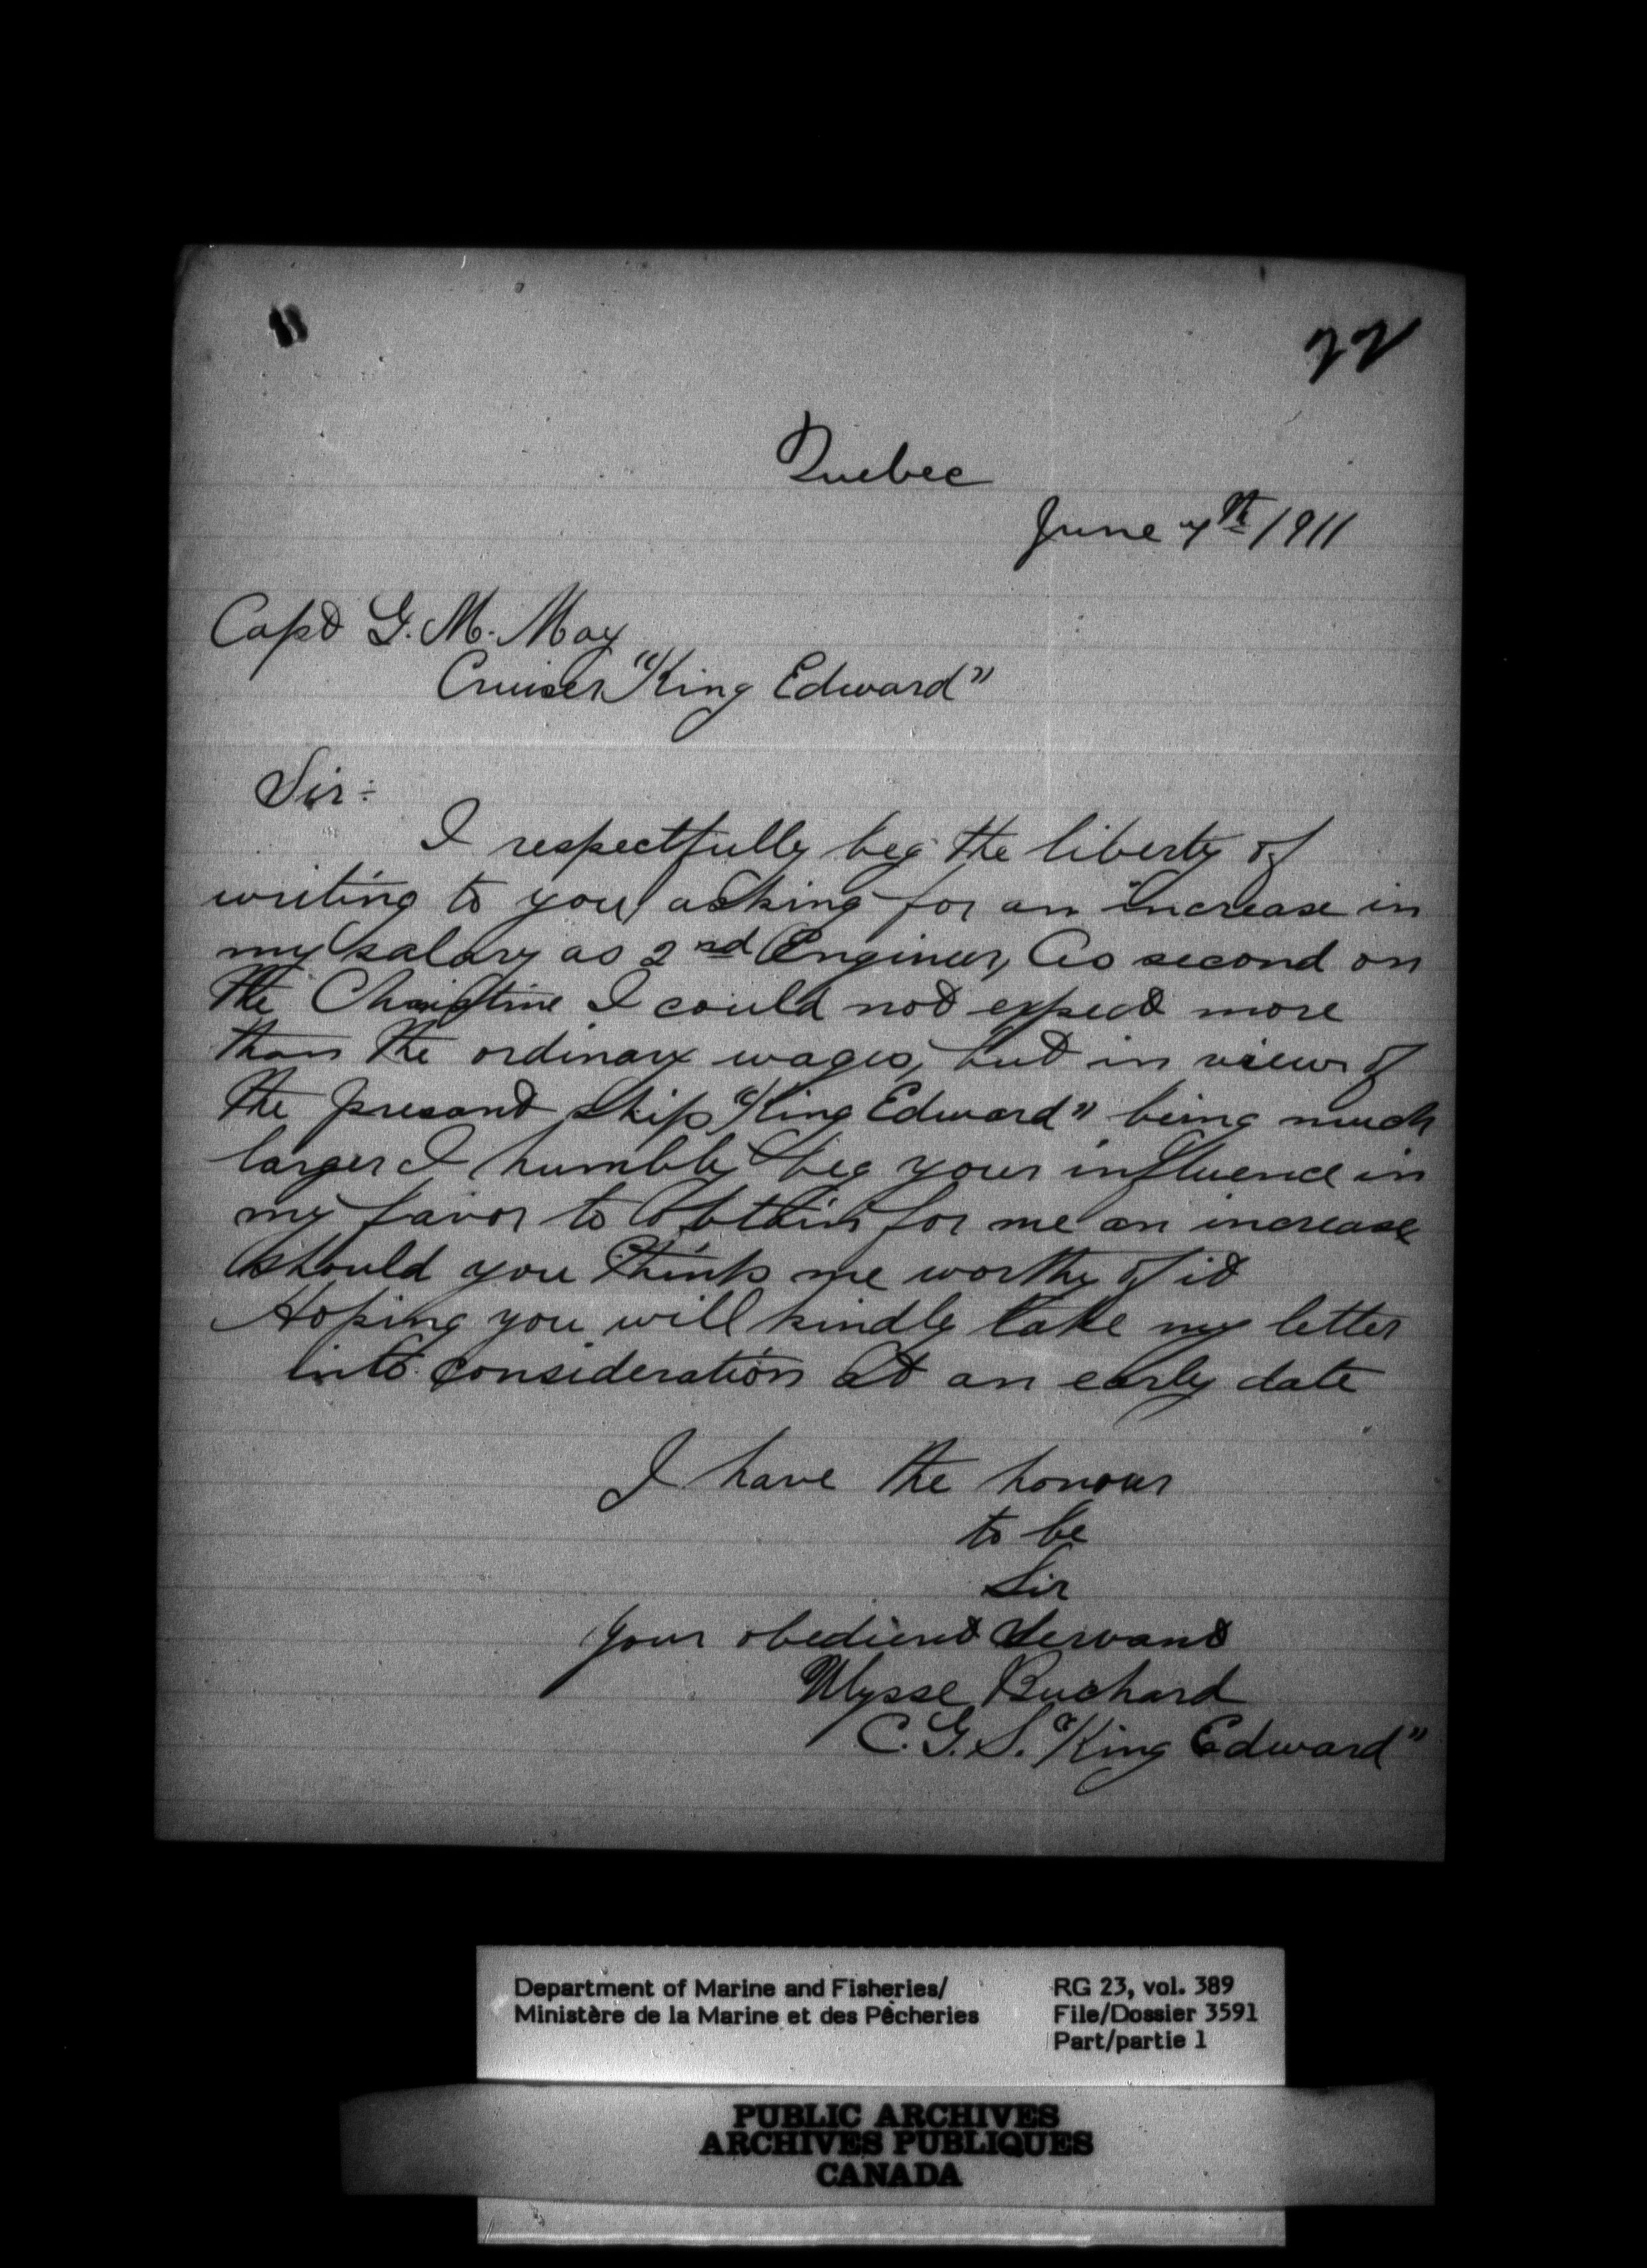 22
Quebec
June 7th 1911
Capt G. M. May
Cruiser "King Edward"
Sir:
I respectfully beg the liberty of
writing to you asking for an increase in
my salary as 2nd Engineer, As second on
the Christine I could not expect more
than the ordinary wages, but in view of
the presant ship "King Edward" being much
larger I humbly beg your influence in
my favor to obtain for me an increase
should you think me worthy of it
Hoping you will kindly take my letter
into consideration at an early date
I have the honour
to be
Sir
Your obedient Servant
Ulysse Buchard
C. G. S. "King Edward"
Department of Marine and Fisheries/ RG 23, vol. 389
Ministère de la Marine et des Pêcheries File/Dossier 3591
Part/partie 1
PUBLIC ARCHIVES
ARCHIVES PUBLIQUES
CANADA